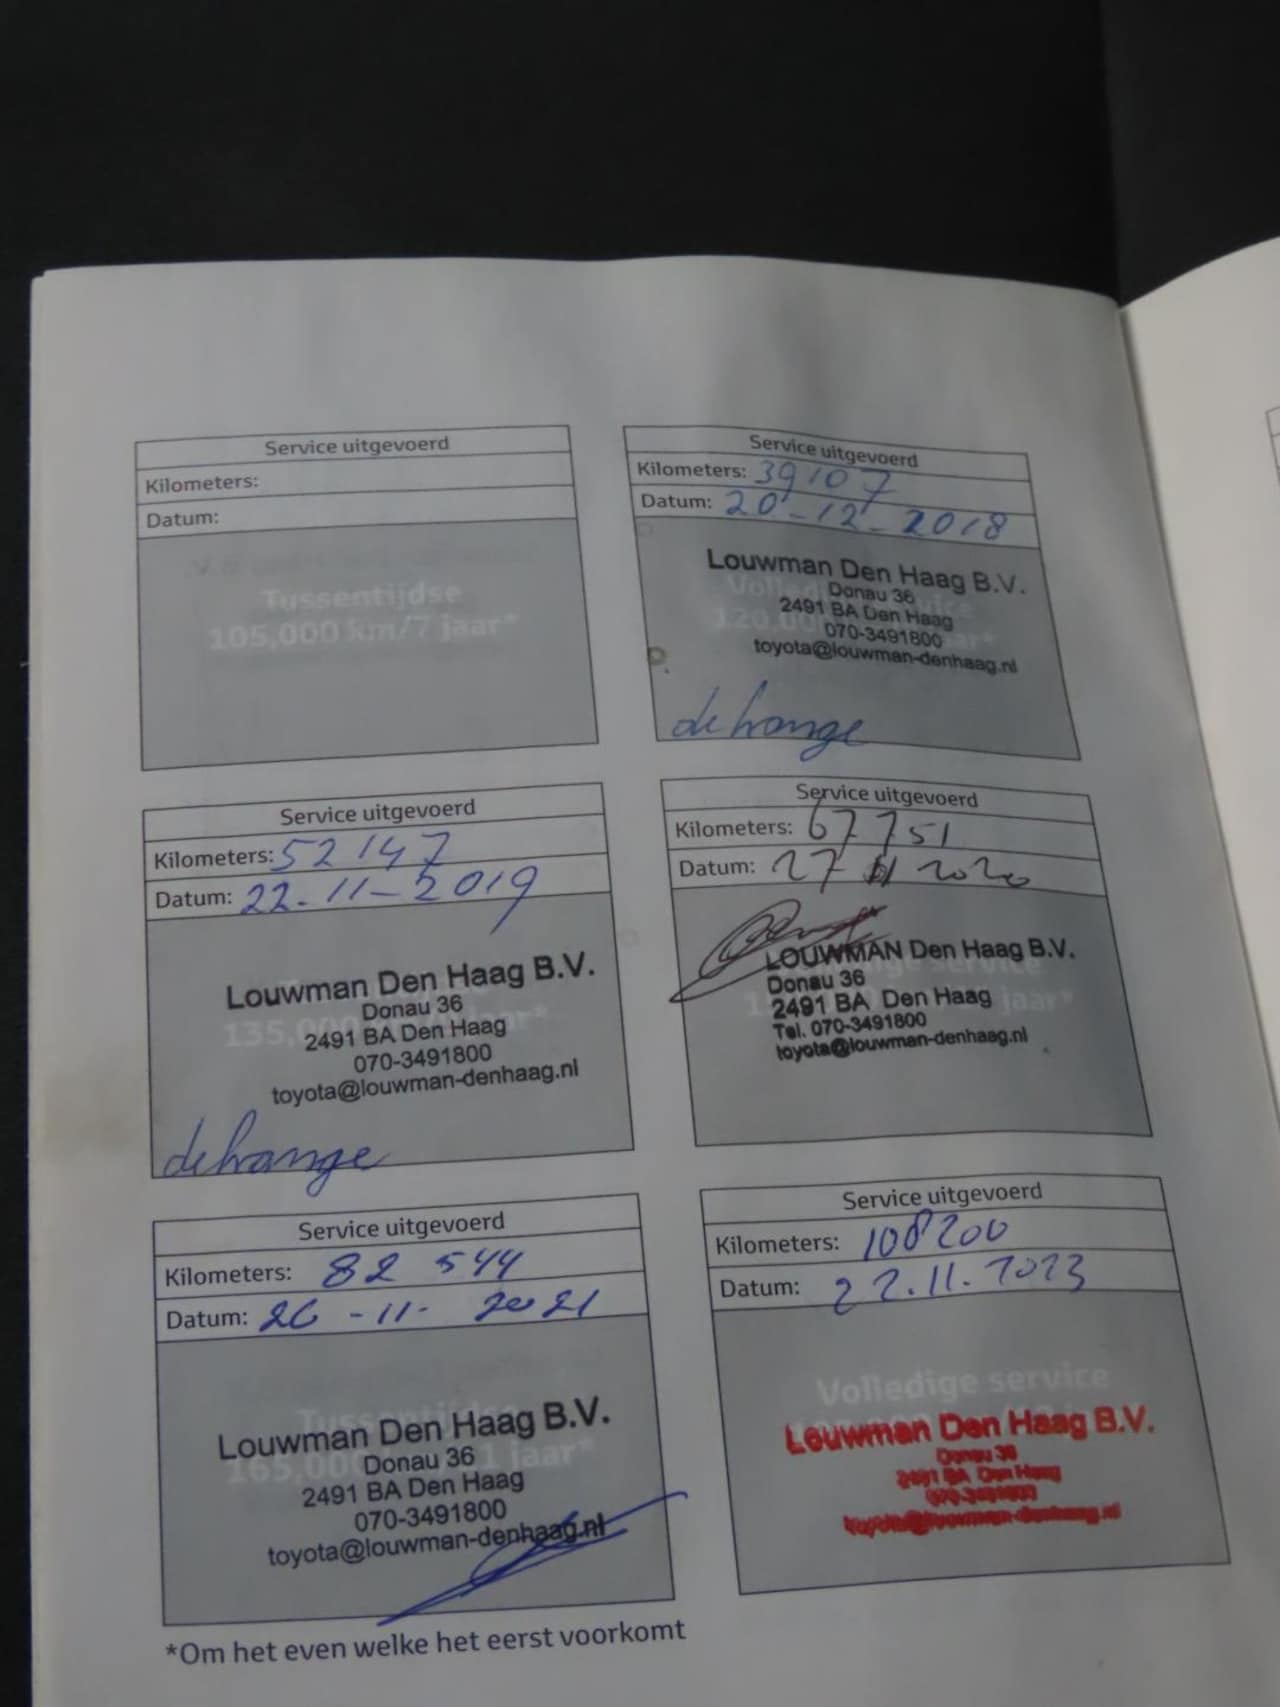 Service uitgevoerd
Kilometers:
Datum:
Tussentijdse
105,000 km/7 jaar*
Service uitgevoerd
Kilometers: 39107
Datum: 20-12-2018
Louwman Den Haag B.V.
Donau 36
2491 BA Den Haag
070-3491800
toyota@louwman-denhaag.nl
Service uitgevoerd
Kilometers: 52147
Datum: 22-11-2019
Louwman Den Haag B.V.
Donau 36
2491 BA Den Haag
070-3491800
toyota@louwman-denhaag.nl
Service uitgevoerd
Kilometers: 67751
Datum: 27 11 2020
LOUWMAN Den Haag B.V.
Donau 36
2491 BA Den Haag
Tel. 070-3491800
toyota@louwman-denhaag.nl
Service uitgevoerd
Kilometers: 82 544
Datum: 26-11-2021
Louwman Den Haag B.V.
Donau 36
2491 BA Den Haag
070-3491800
toyota@louwman-denhaag.nl
Service uitgevoerd
Kilometers: 108200
Datum: 22.11.2023
Volledige service
Louwman Den Haag B.V.
Donau 36
2491 BA Den Haag
070-3491800
toyota@louwman-denhaag.nl
*Om het even welke het eerst voorkomt